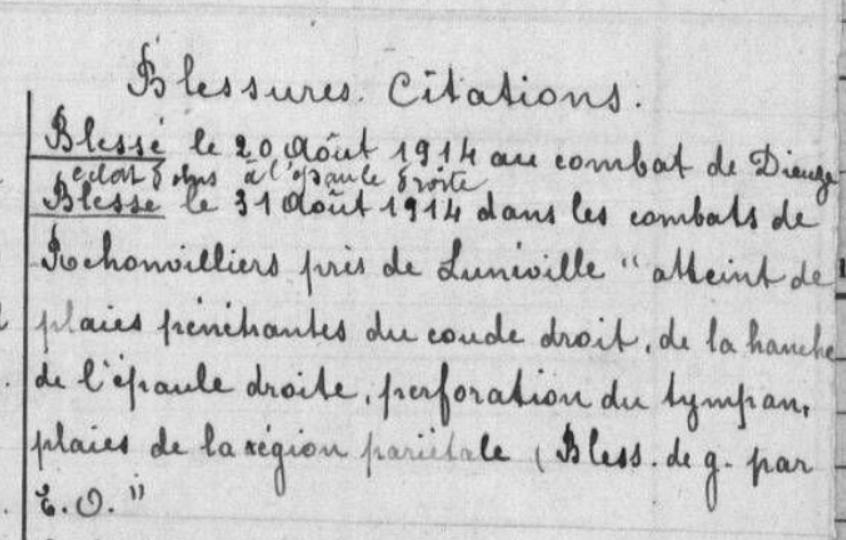 Blessures. Citations.
Blessé le 20 Août 1914 au combat de Dieuze
eclat d'obus à l'épaule droite
Blessé le 31 Août 1914 dans les combats de
Rehonvilliers près de Lunéville " atteint de
plaies pénétrantes du coude droit, de la hanche
de l'épaule droite, perforation du tympan,
plaies de la région pariétale ( Bless. de g. par
E.O. "